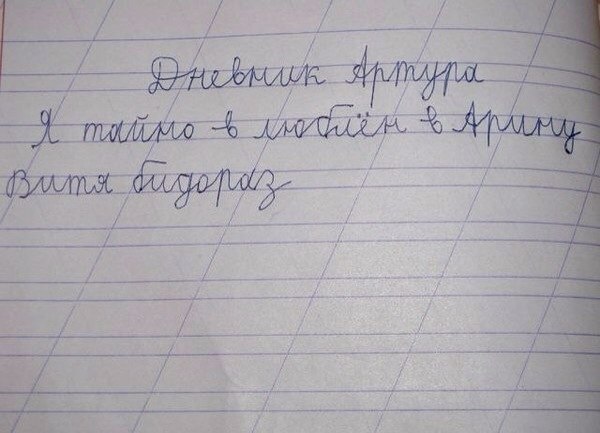 Дневник Артура
Я тайно в люблён в Арину
Витя бидораз